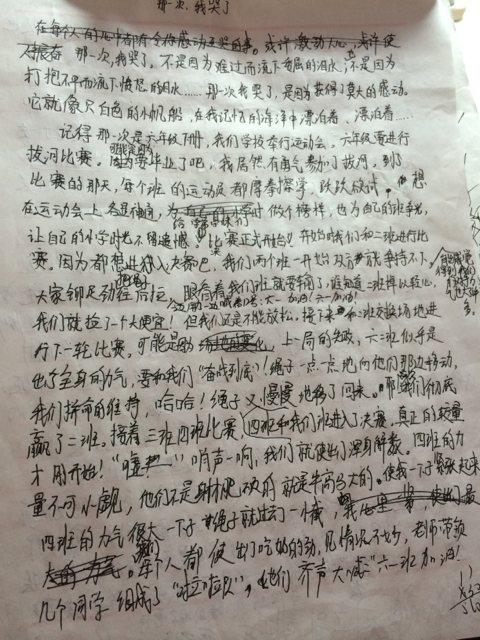 那一次，我哭了
在每个人的心中都有令你感动至哭的事。或许激动人心，或许使
人振奋 那一次，我哭了，不是因为难过而流下苦屈的泪水；不是因为
打抱不平而流下愤怒的泪水……那一次我哭了，是因为获得了莫大的感动。
它就像只白色的小帆船，在我记忆的海洋中漂泊着、漂泊着……
记得那一次是六年级下册，我们学校举行运动会。六年级要进行
拔河比赛。可能是因为要毕业了吧，我居然有勇气参加小拔河。到了
比赛的那天，每个班的运动员都摩拳擦掌，跃跃欲试。想
在运动会上名垂神道，为给学弟学妹们做个榜样，也为自己的班争光，
让自己的小学时光不留遗憾。比赛正式开始！开始时我们和二班进行比
赛。因为都想进入决赛吧，我们两个班一开始
大家卯足劲往后拉 眼看着我们班就要输了，谁知道二班掉以轻心，
我们就捡了个大便宜！但我们还是不能放松，接下来和二班交换场地进
行下一轮比赛。可能是上一局的失败，六二班似乎是
出了全身的力气，要和我们"奋战到底"！绳子一点一点地向他们那边移动，
我们拼命的维持，哈哈！绳子又慢慢地移了回来。耶！我们彻底
赢了二班。接着三班四班比赛 四班和我们班进入了决赛。真正的较量
才刚开始！"嘘"哨声一响，我们就使出了浑身解数。四班的力
量不可小觑，他们不是身材魁梧的就是牛高马大的。使我一下子紧张起来
四班的力气很大一下子绳子就过去了一小截，
每个人都使出了吃奶的劲，见情况不妙，老师带领
几个同学组成了"啦啦队"，她们齐声大喊"六一班加油！